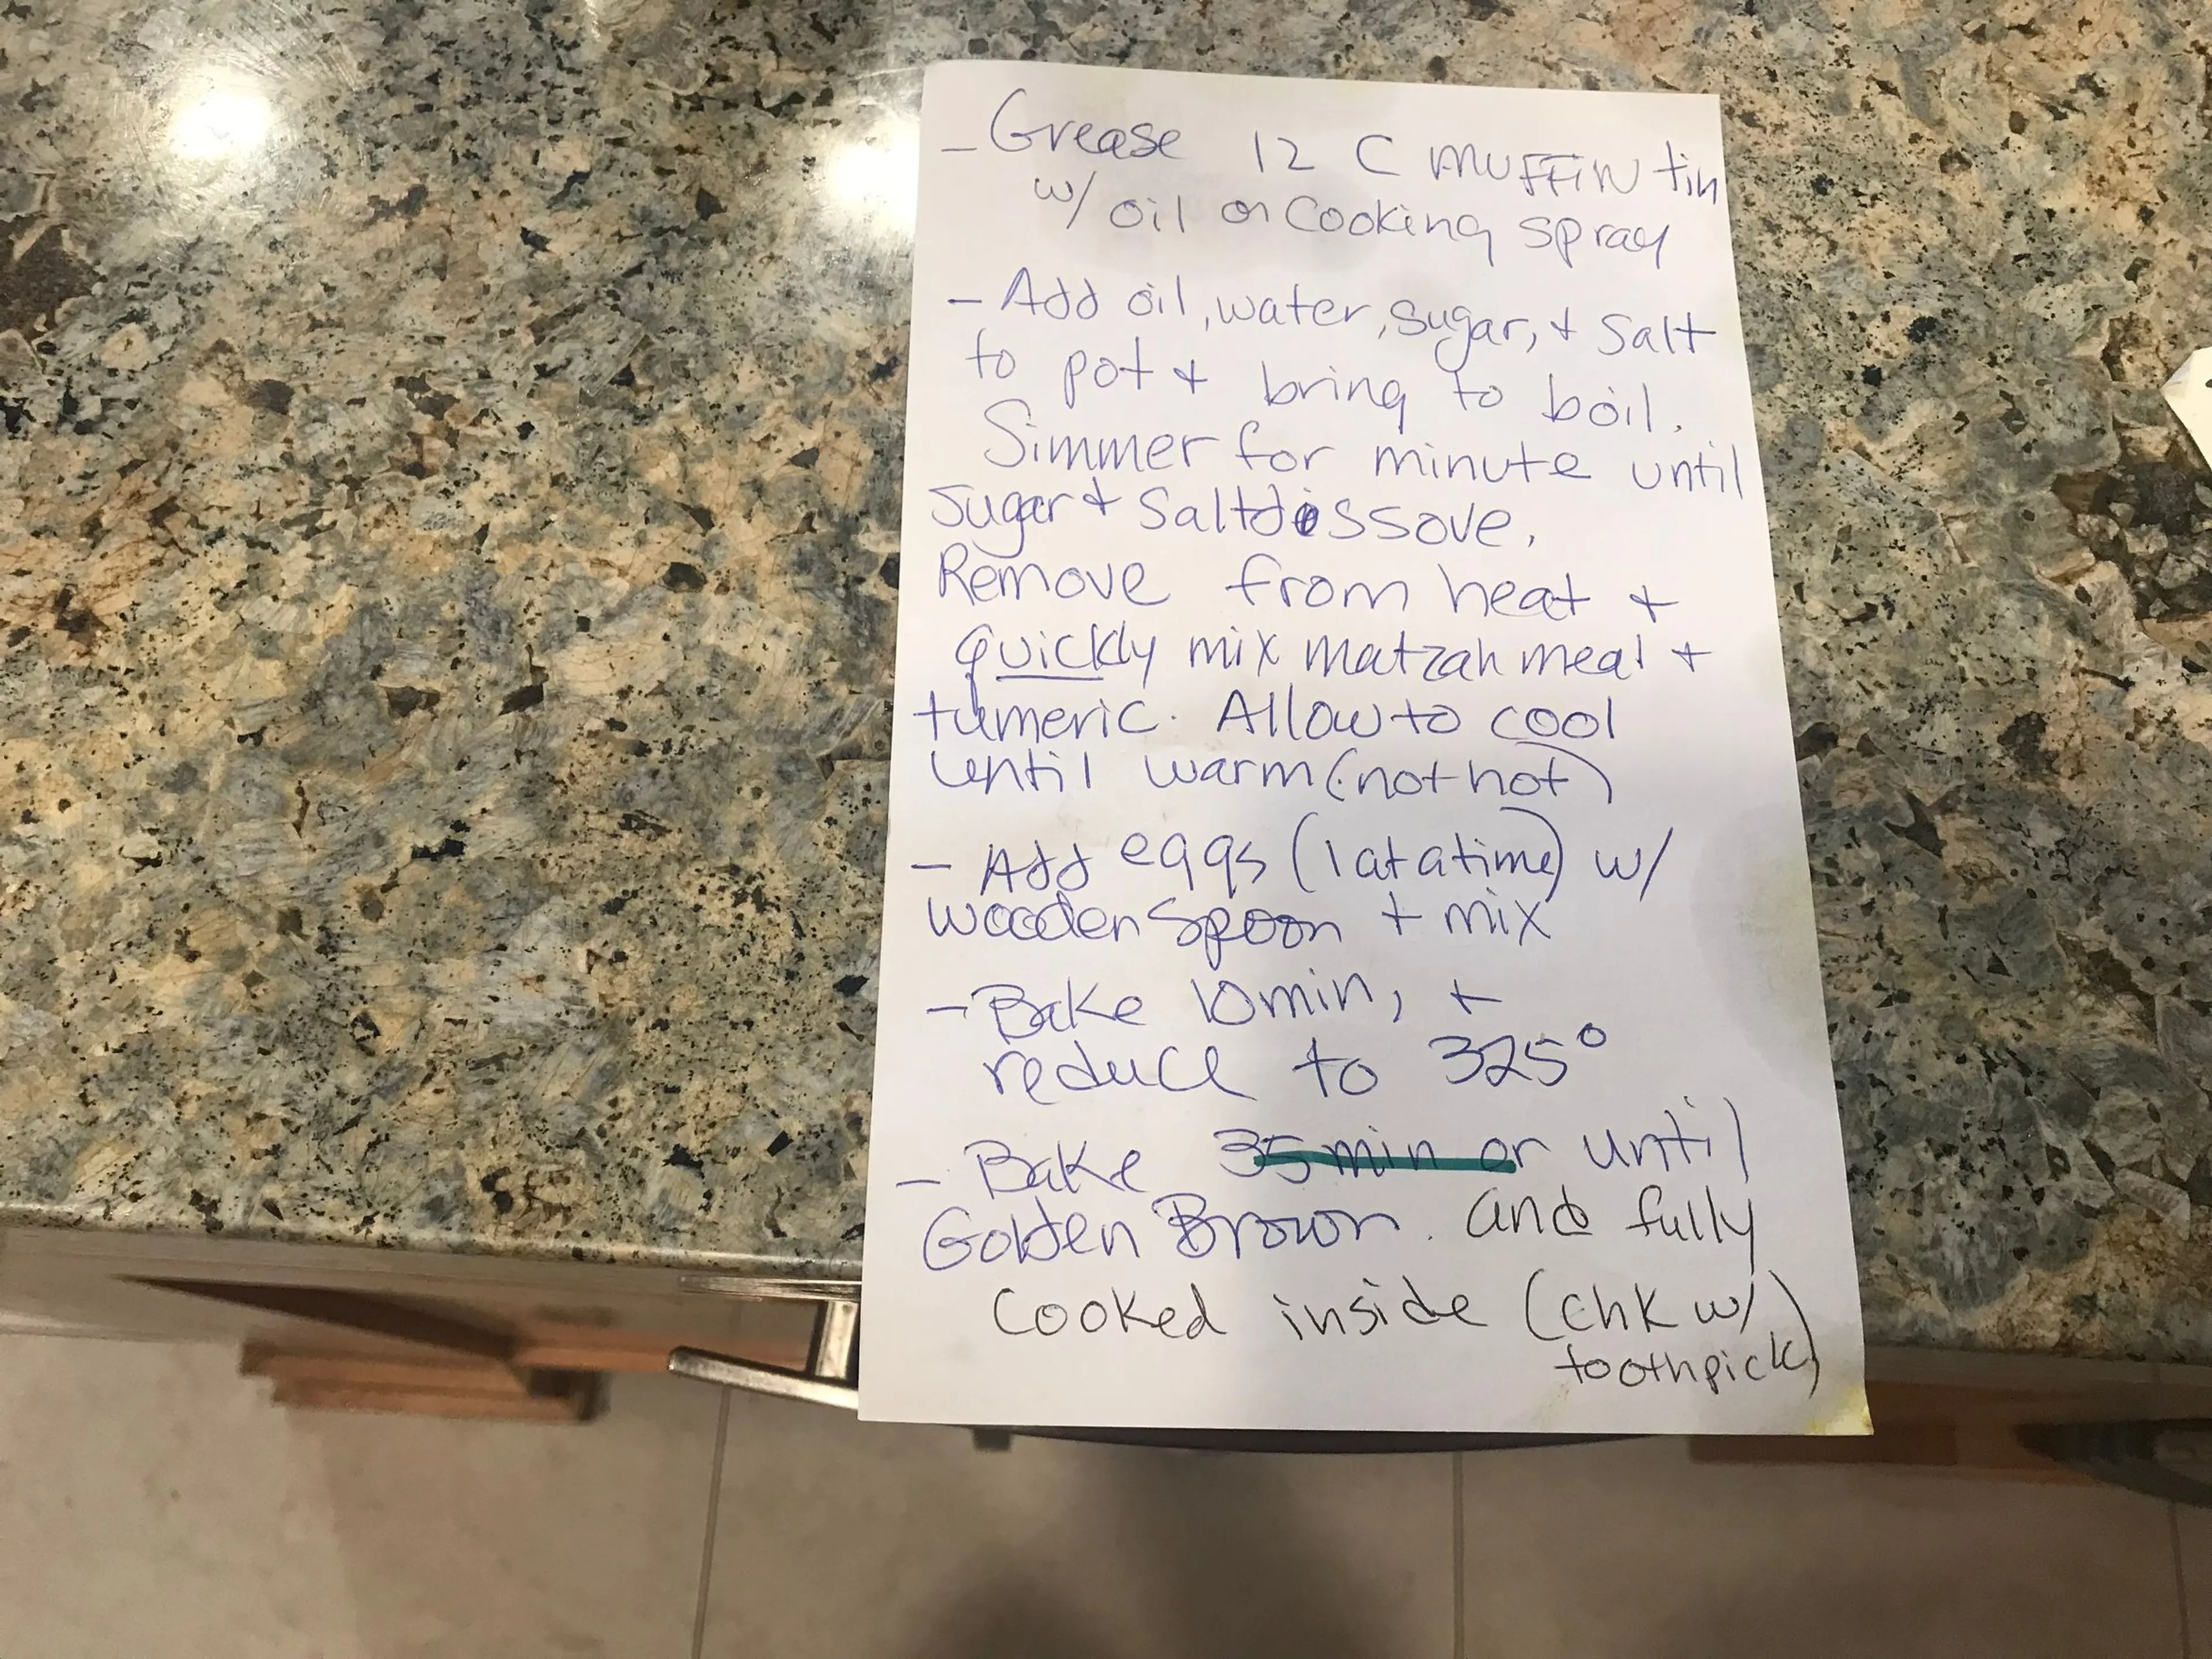 - Grease 12 C MUFFiN tin
w/ oil or Cooking spray
- Add oil, water, sugar, + Salt
to pot + bring to boil.
Simmer for minute until
Sugar + Salt dissove.
Remove from heat +
quickly mix matzah meal +
tumeric. Allow to cool
until warm (not hot)
- Add eggs (1 at a time) w/
wooden Spoon + mix
- Bake 10 min, +
reduce to 325°
- Bake 35 min or until
Golden Brown. and fully
Cooked inside (chk w/
toothpick)